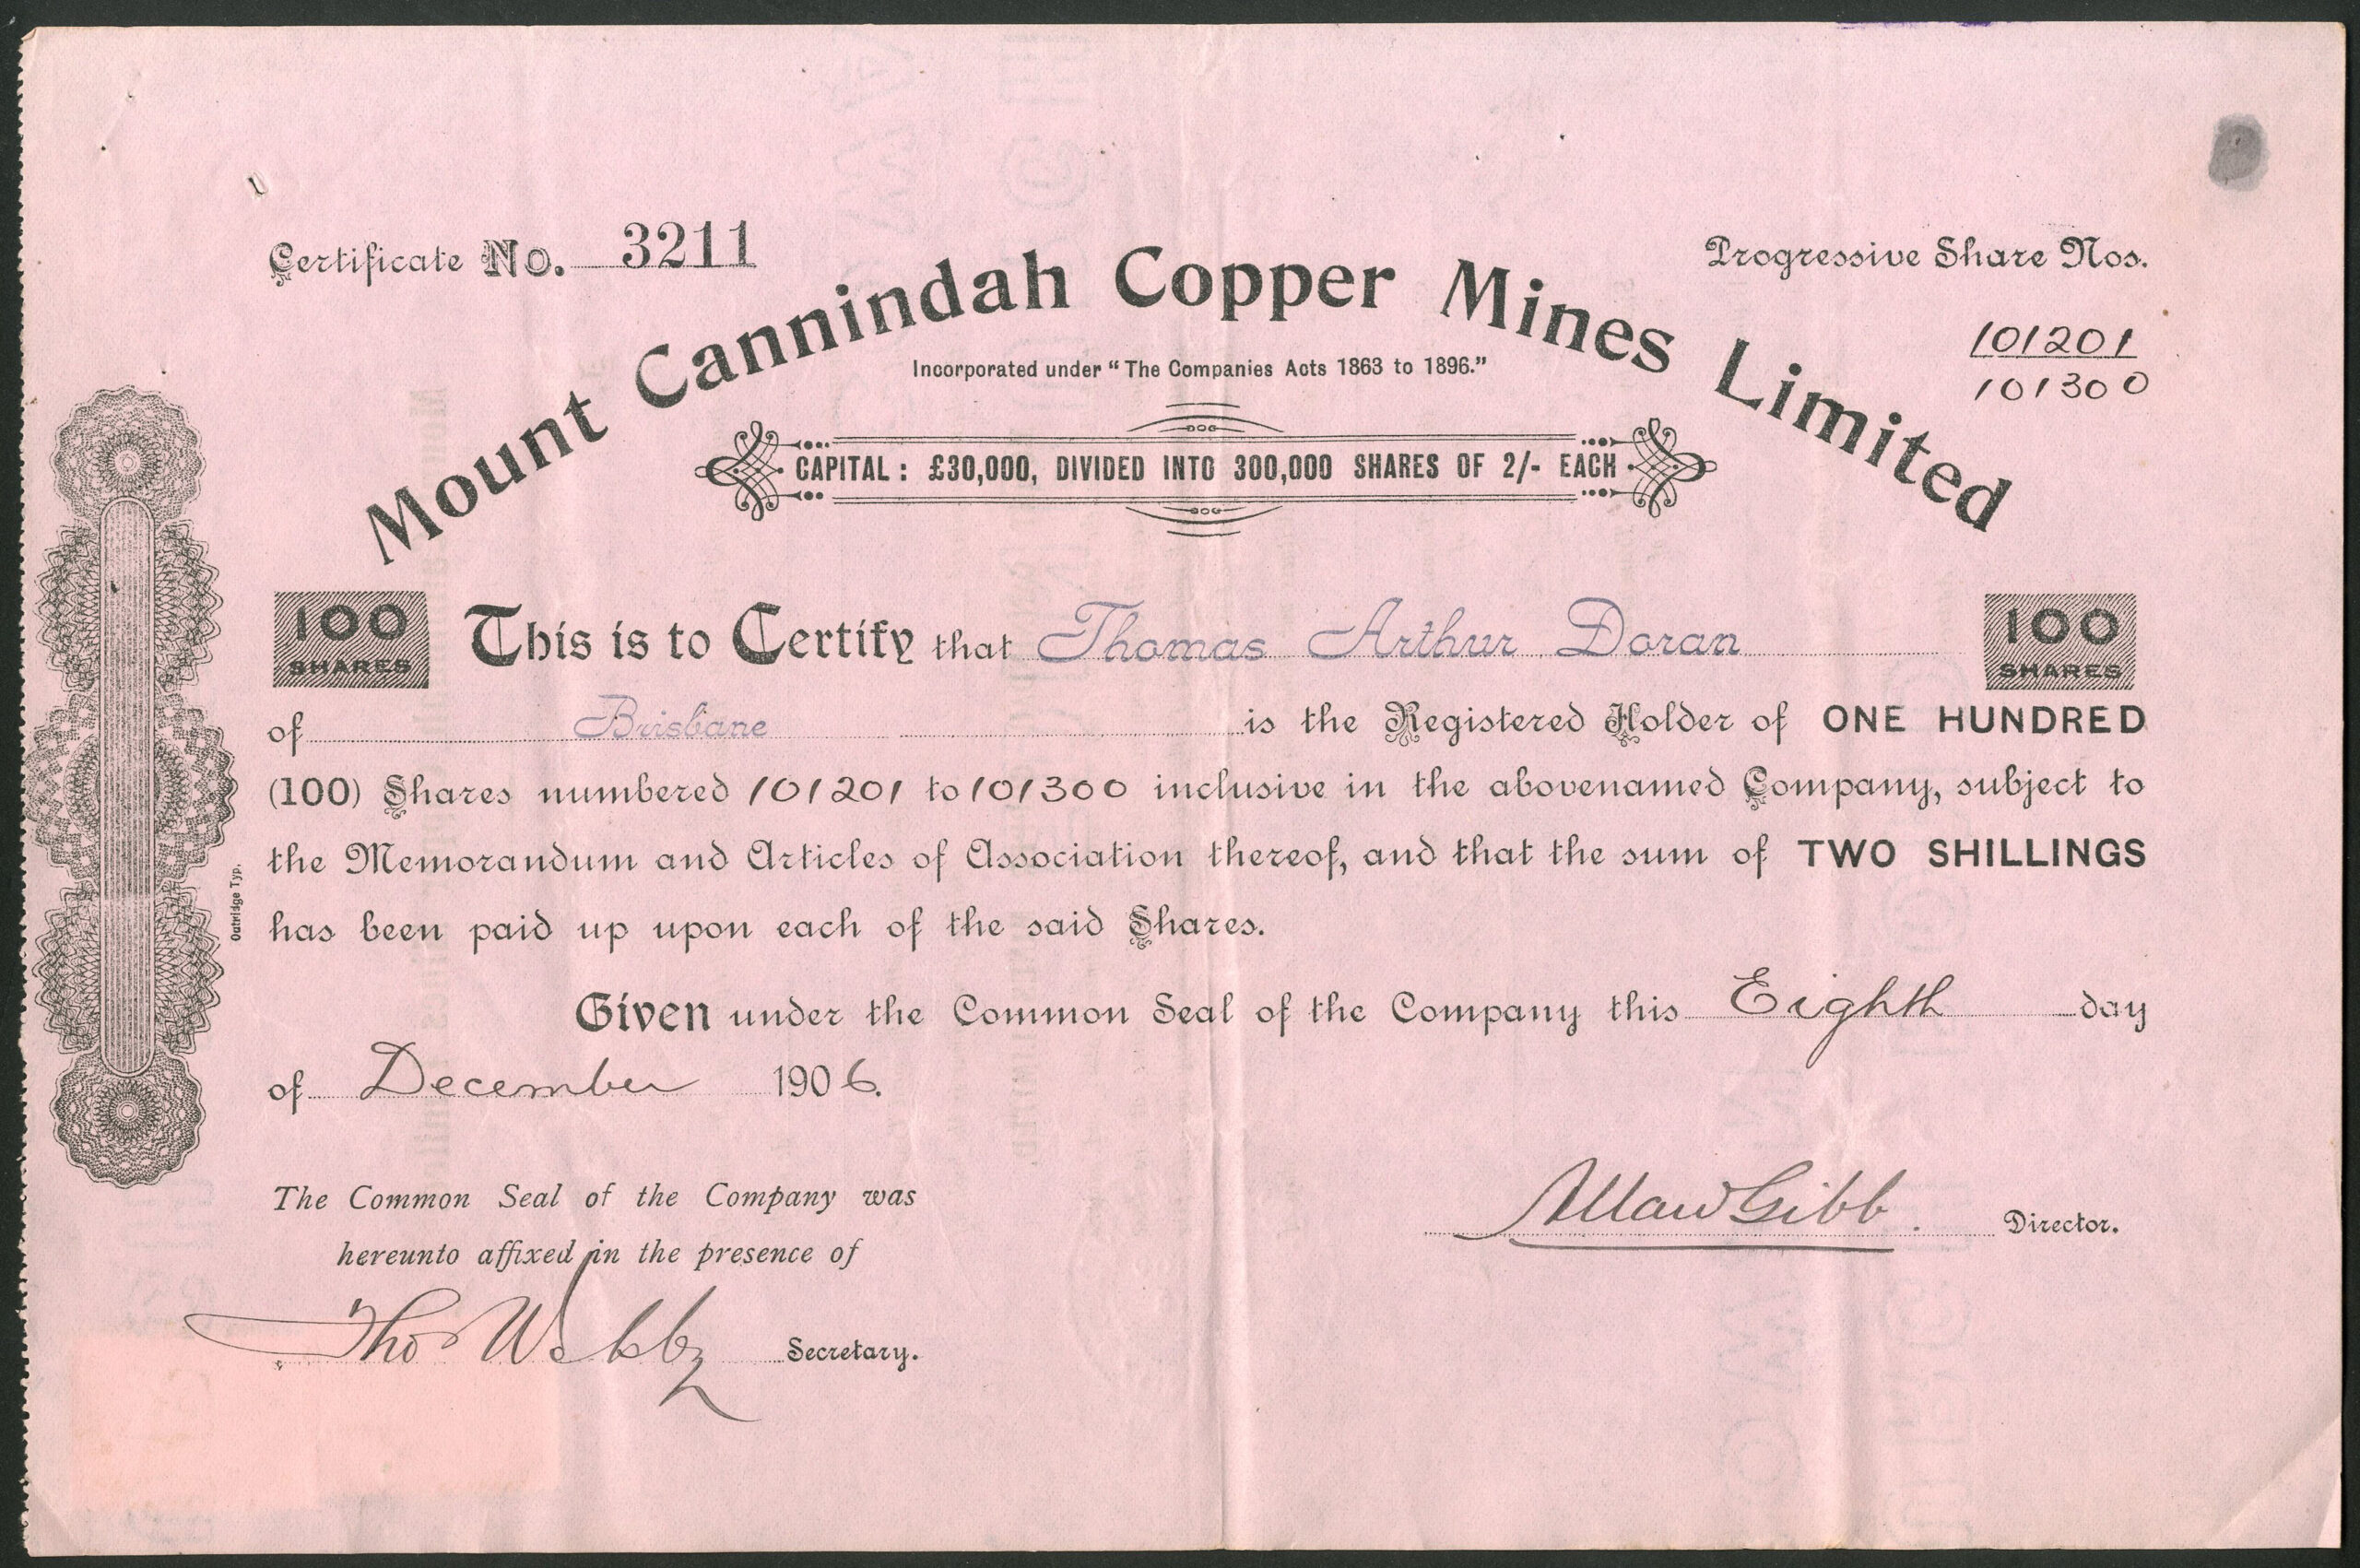 Certificate No. 3211
Progressive Share Nos.
101201
101300
Mount Cannindah Copper Mines Limited
Incorporated under "The Companies Acts 1863 to 1896."
CAPITAL: £30,000, DIVIDED INTO 300,000 SHARES OF 2/- EACH
100 SHARES
100 SHARES
This is to Certify that Thomas Arthur Doran
of Brisbane is the Registered Holder of ONE HUNDRED
(100) Shares numbered 101201 to 101300 inclusive in the abovenamed Company, subject to
the Memorandum and Articles of Association thereof, and that the sum of TWO SHILLINGS
has been paid up upon each of the said Shares.
Given under the Common Seal of the Company this Eighth day
of December 1906.
The Common Seal of the Company was
hereunto affixed in the presence of
Allan Gibb. Director.
Thos Webby Secretary.
Outridge Typ.